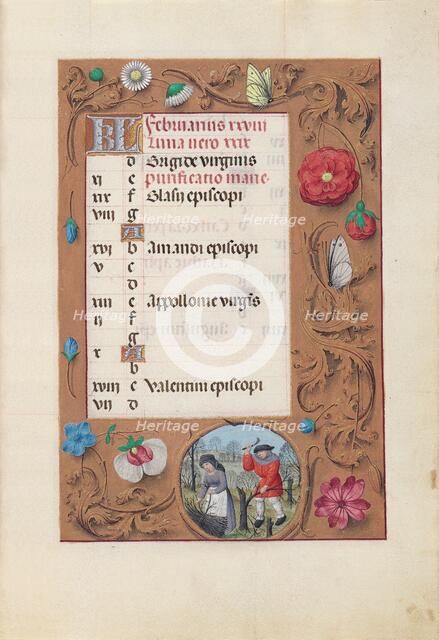 KL Februarius xxviij
Luna vero xxix
d Brigide virginis
xj e purificatio marie
xix f Blasij episcopi
viij g
A
xvj b Amandi episcopi
v c
d
xiij e Appollonie virginis
ij f
g
x A
b
xviij c Valentini episcopi
vij d
Heritage
Heritage
Heritage
Heritage
Heritage
Heritage
Heritage
Heritage